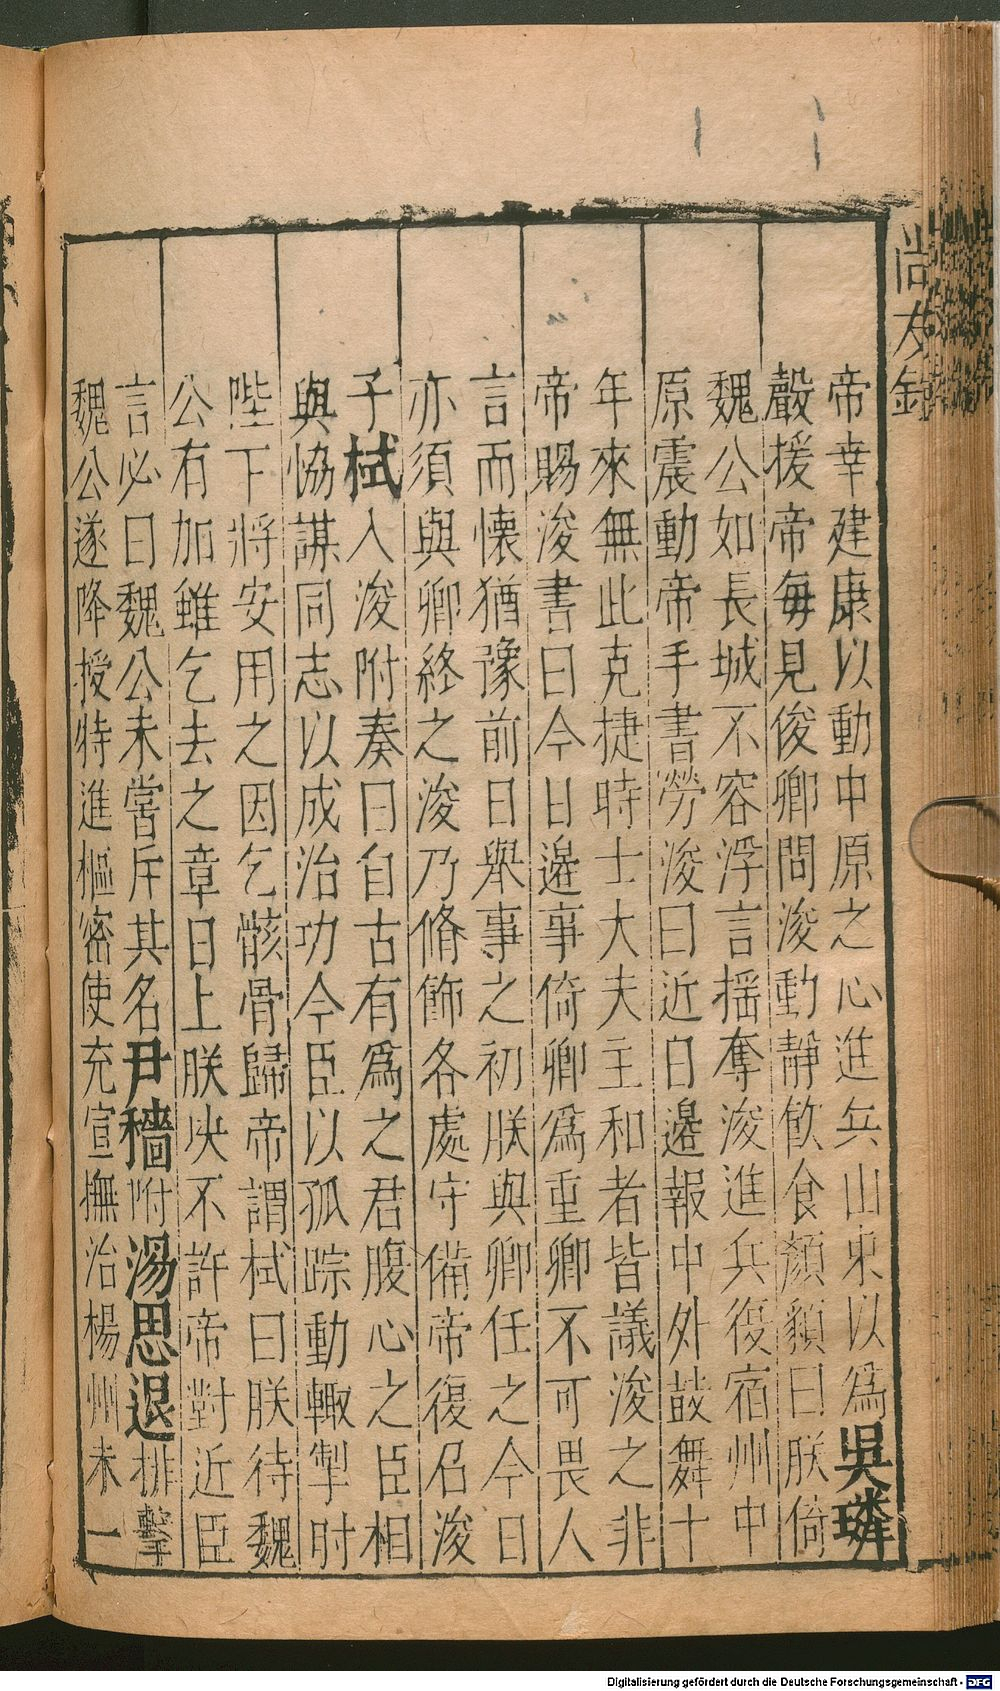 尚友錄
帝幸建康以動中原之心進兵山東以爲吳璘
聲援帝每見俊卿問浚動靜飲食顏貌曰朕倚
魏公如長城不容浮言搖奪浚進兵復宿州中
原震動帝手書勞浚曰近日邊報中外鼓舞十
年來無此克捷時士大夫主和者皆議浚之非
帝賜浚書曰今日邊事倚卿爲重卿不可畏人
言而懷猶豫前日舉事之初朕與卿任之今日
亦須與卿終之浚乃脩飾各處守備帝復召浚
子栻入浚附奏曰自古有爲之君腹心之臣相
與恊謀同志以成治功今臣以孤踪動輙掣肘
陛下將安用之因乞骸骨歸帝謂栻曰朕待魏
公有加雖乞去之章日上朕决不許帝對近臣
言必曰魏公未嘗斥其名尹穡附湯思退排擊
魏公遂降授特進樞密使充宣撫治楊州未一
Digitalisierung gefördert durch die Deutsche Forschungsgemeinschaft - DFG